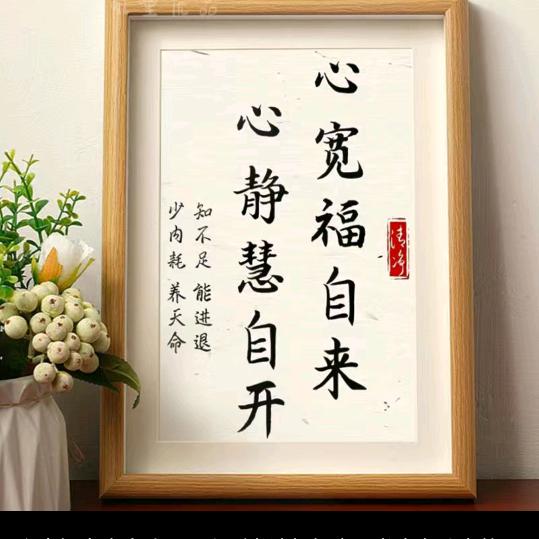 心宽福自来
心静慧自开
知不足 能进退
少内耗 养天命
清净